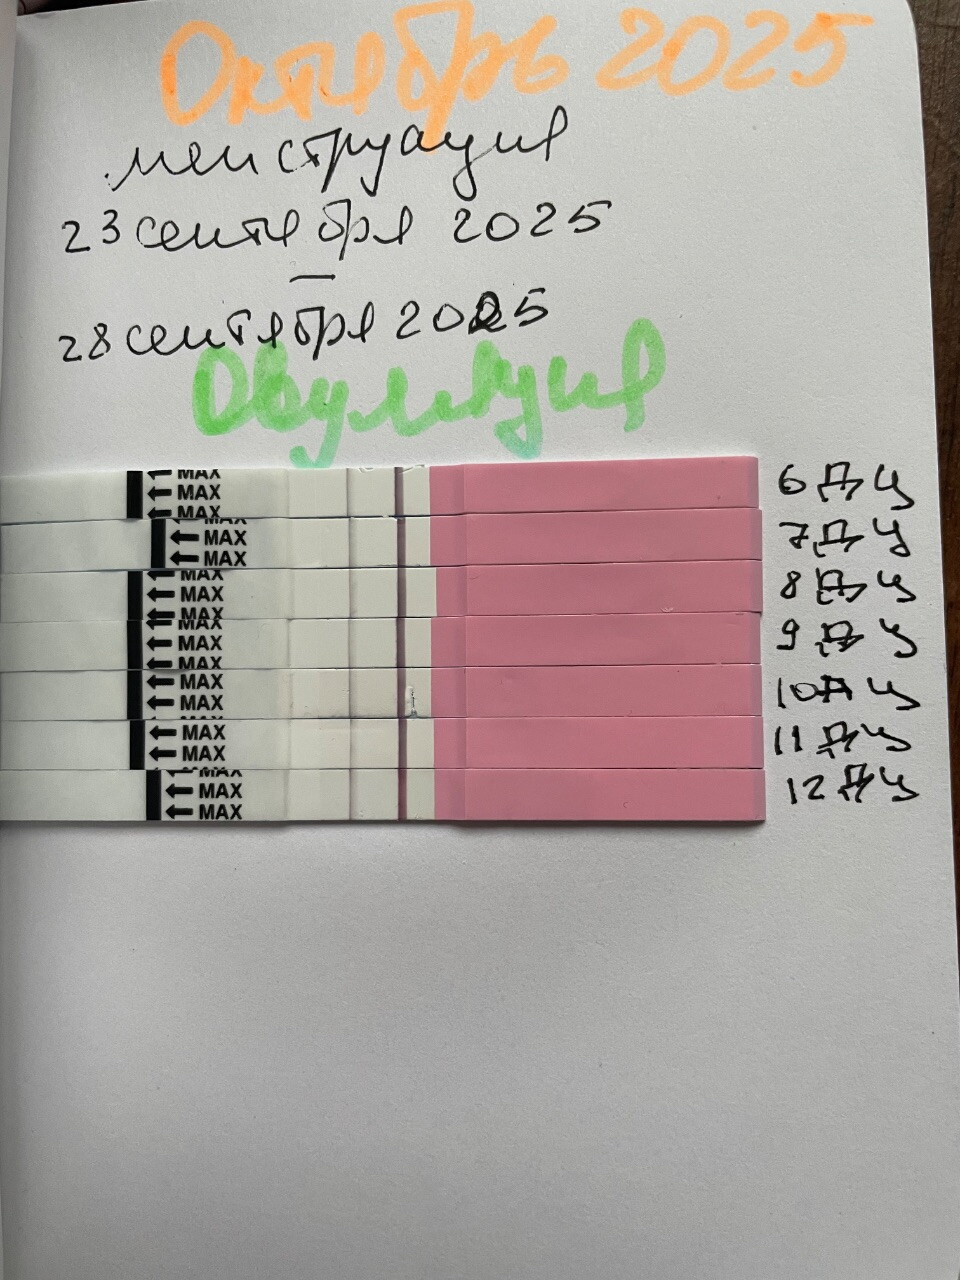 Октябрь 2025
менструация
23 сентября 2025
—
28 сентября 2025
Овуляция
MAX
MAX
MAX
6 ДЦ
MAX
MAX
MAX
7 ДЦ
MAX
MAX
MAX
8 ДЦ
MAX
MAX
MAX
9 ДЦ
MAX
MAX
10 ДЦ
MAX
MAX
11 ДЦ
MAX
MAX
MAX
12 ДЦ